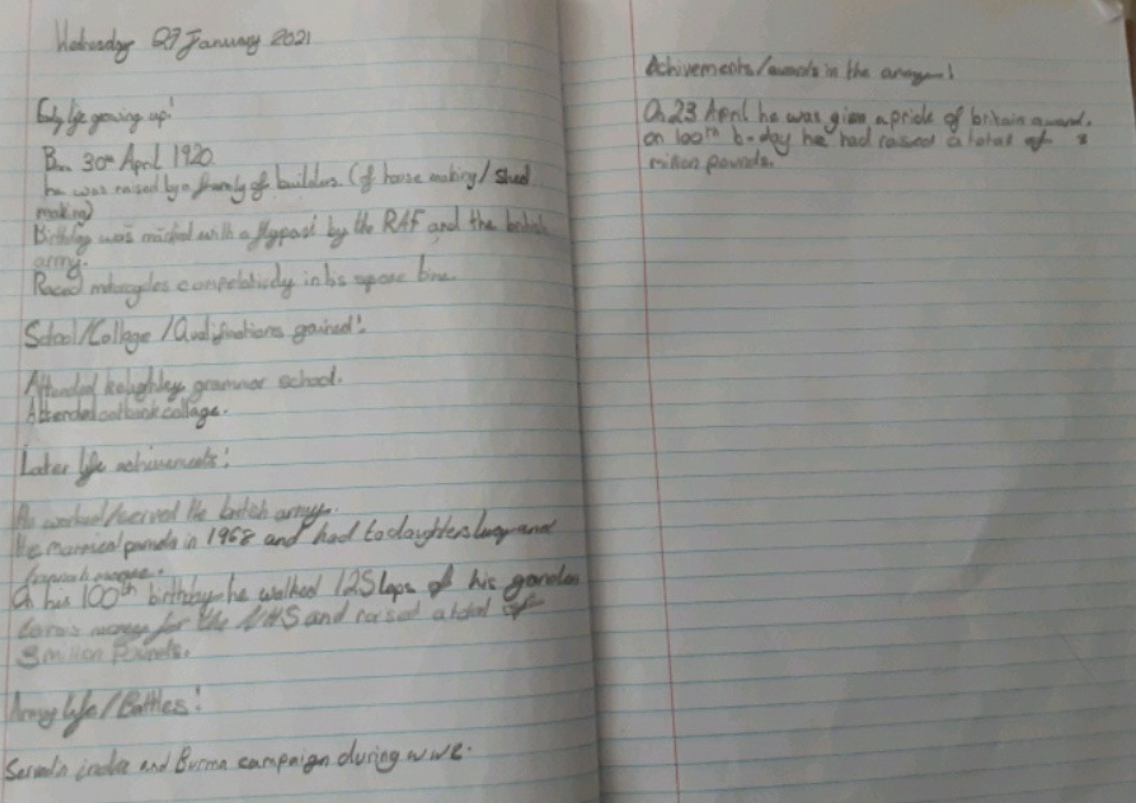 Wednesday 27 January 2021
Early life growing up:
Born 30th April 1920
he was raised by a family of builders. (of house making/shed
making)
Birthday was marked with a flypast by the RAF and the british
army.
Raced motorcycles competatively in his spare time.
School/Collage/Qualifications gained:
Attended keighley grammar school.
Attended collage.
Later life achivements:
He worked/served the british army.
He married pamela in 1968 and had to daughters lucy and
On his 100th birthday he walked 125 laps of his garden
to rais money for the NHS and raised a total of
million Pounds.
Army life/Battles:
Served in india and Burma campaign during
Achivements/awards in the army!
On 23 April he was given a pride of britain award.
on 100th b-day he had raised a total of
million pounds.